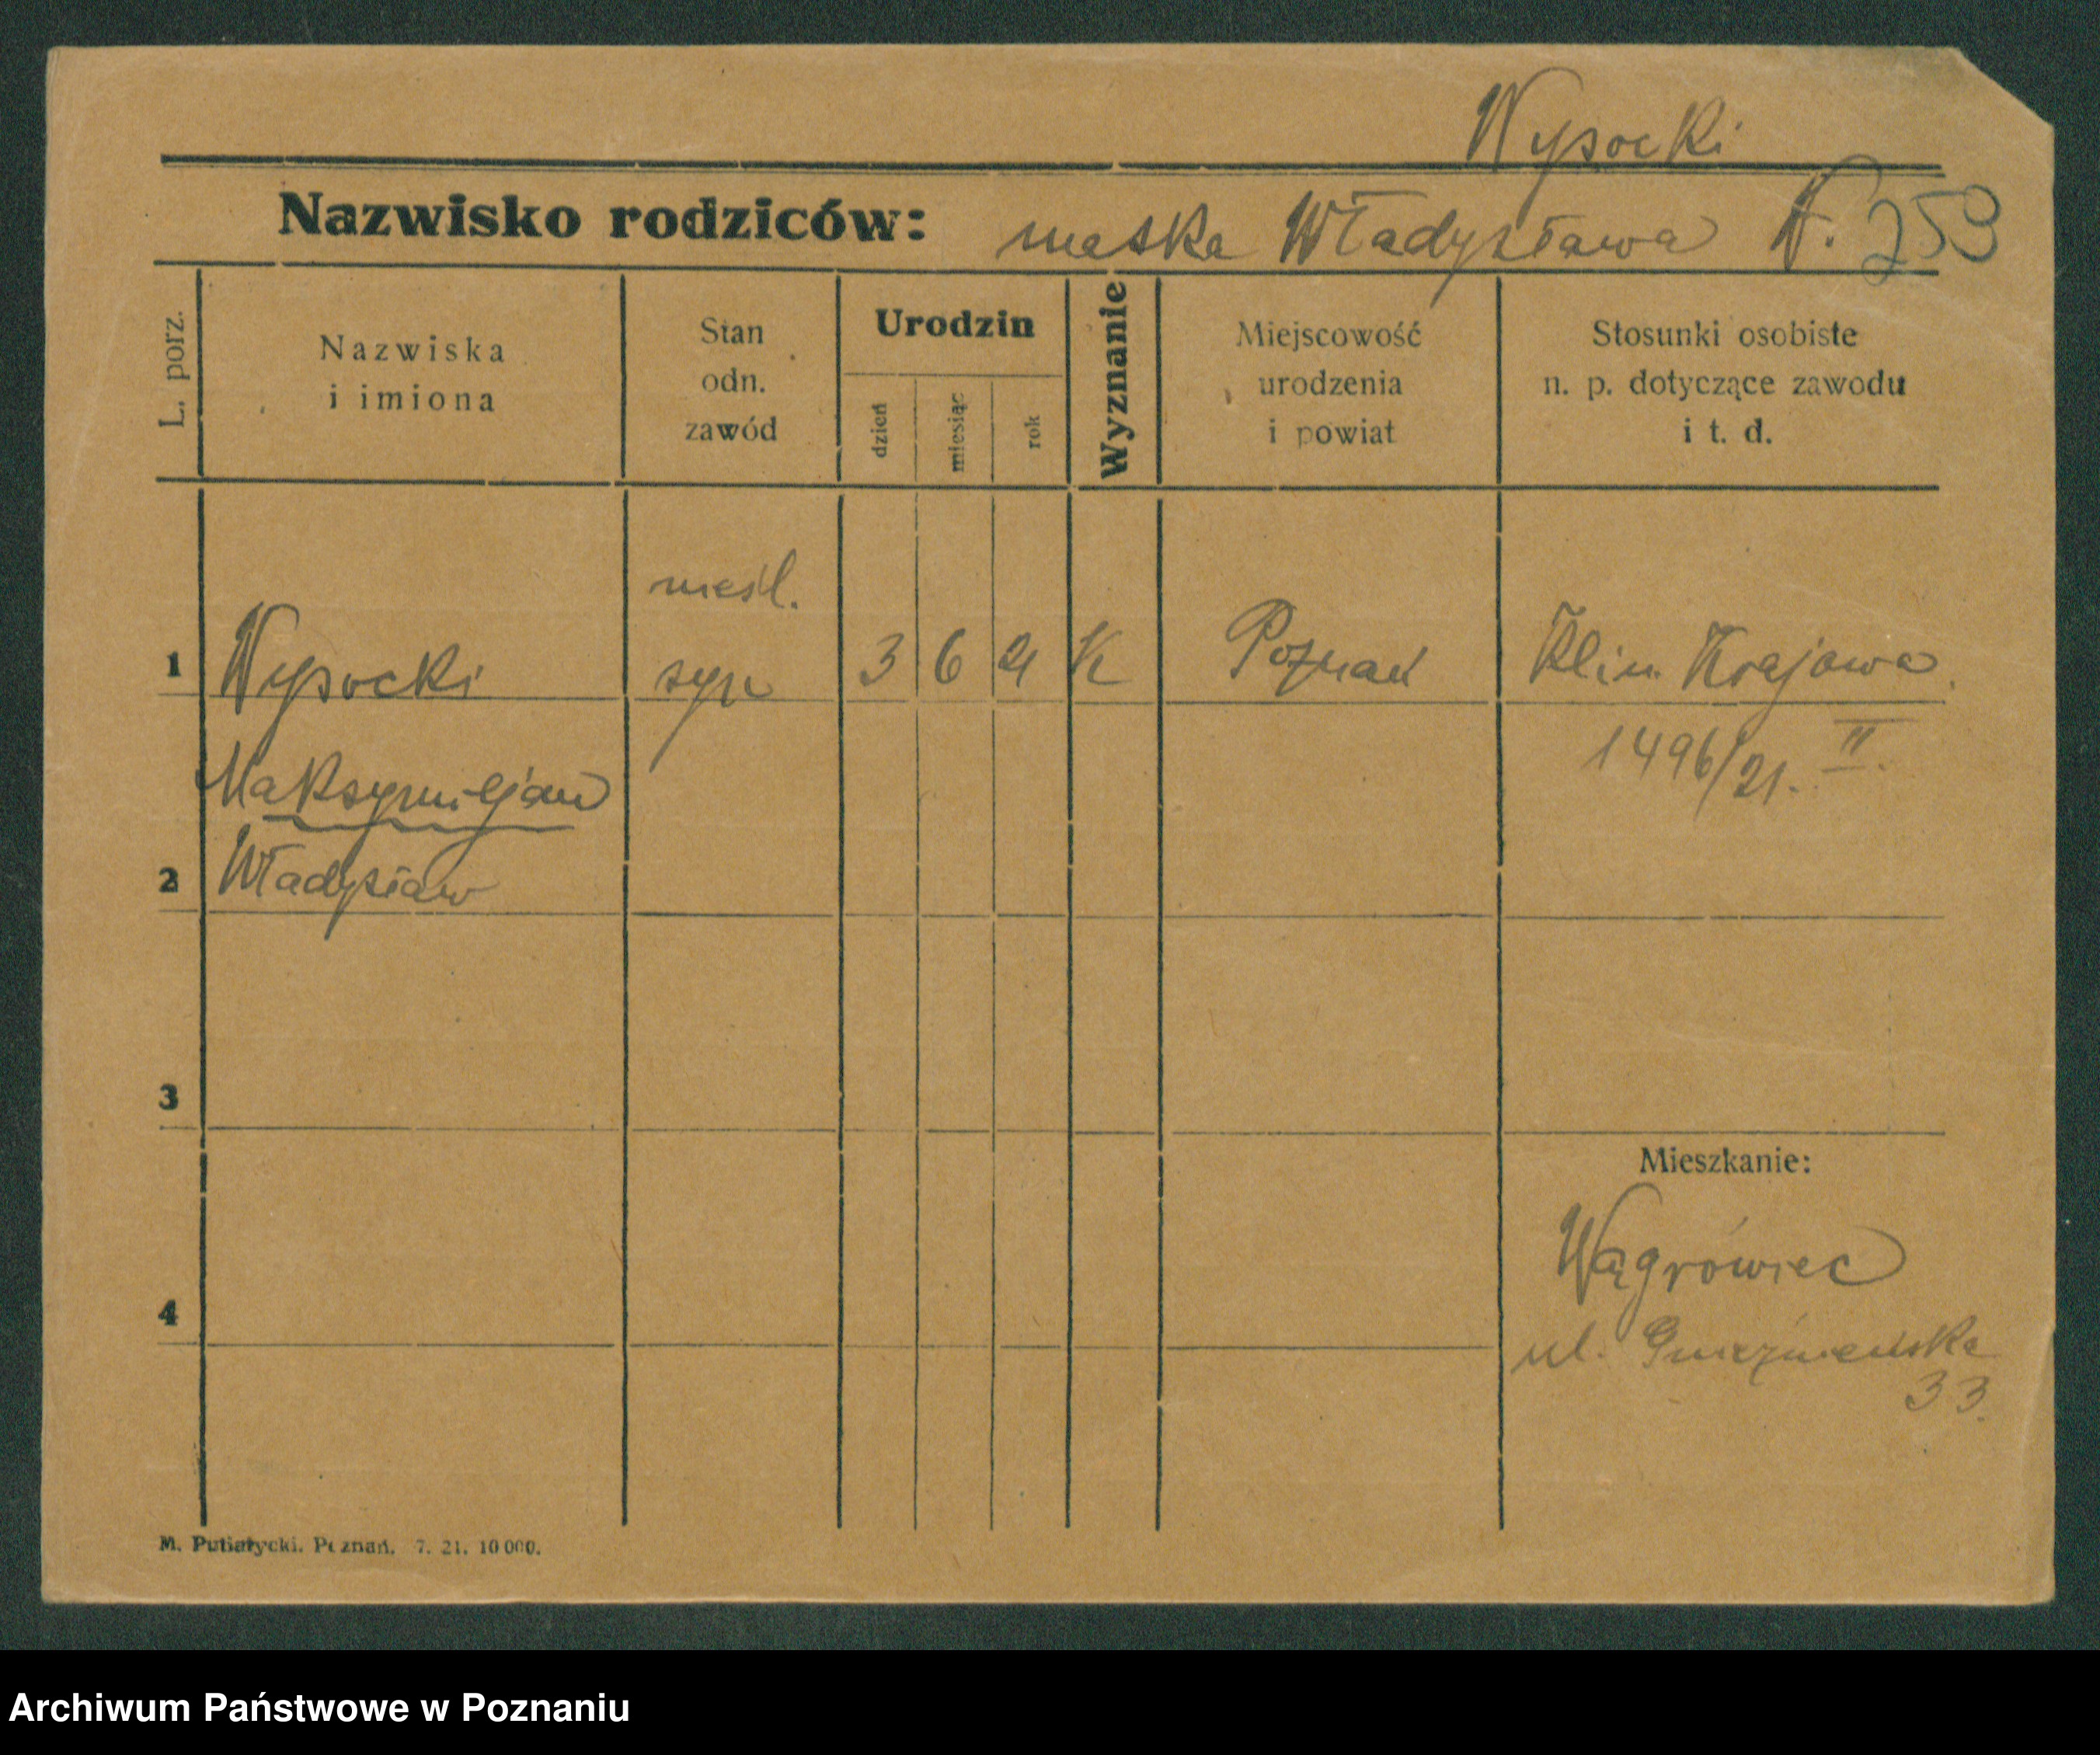 Wysocki
Nazwisko rodziców: matka Władysława W. 259
L. porz.
Nazwiska
i imiona
Stan
odn.
zawód
Urodzin
dzień
miesiąc
rok
Wyznanie
Miejscowość
urodzenia
i powiat
Stosunki osobiste
n. p. dotyczące zawodu
i t. d.
nieśl.
1 Wysocki syn 3 6 21 K Poznań Klin. Krajowa
1496/21. II.
Maksymiljan
2 Władysław
3
Mieszkanie:
Wągrówiec
4
ul. Gnieźnieńska
33.
M. Putiatycki. Poznań. 7. 21. 10 000.
Archiwum Państwowe w Poznaniu